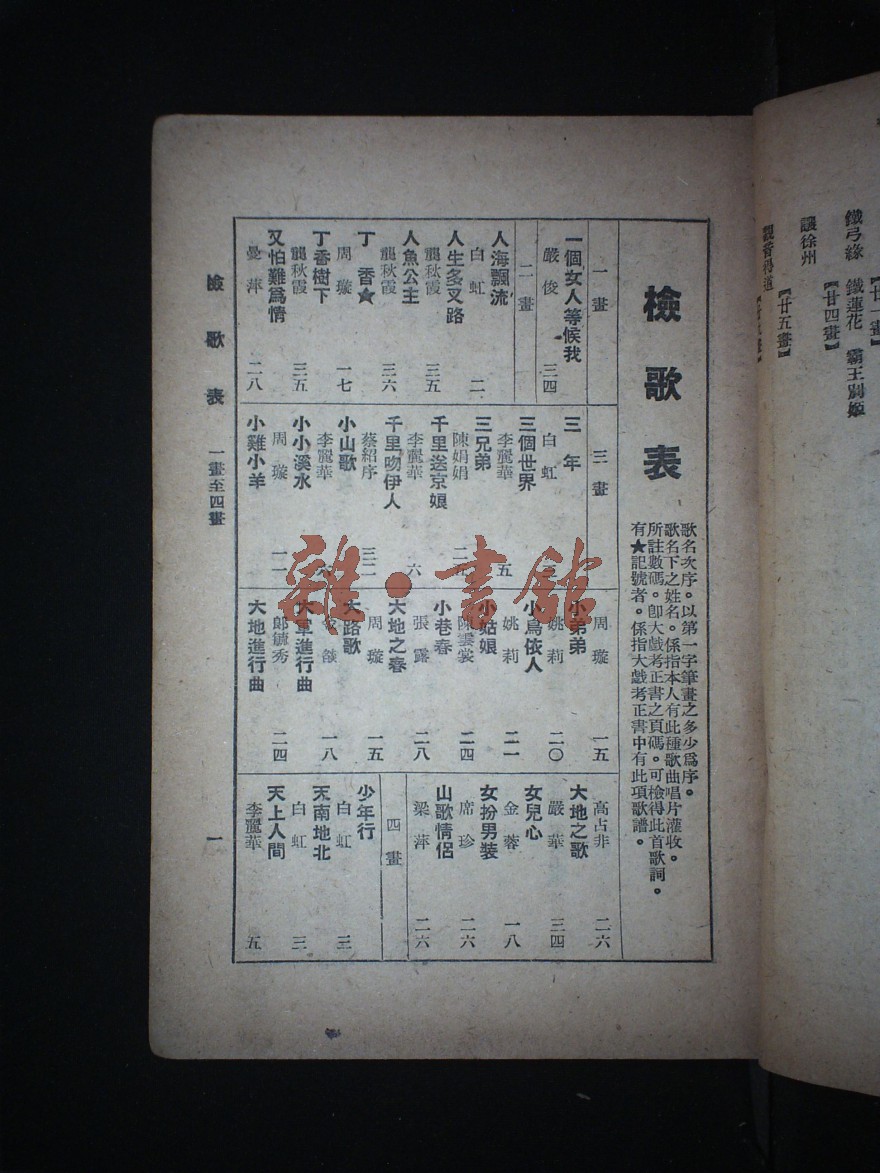 檢歌表
歌名次序。以第一字筆畫之多少爲序。
歌名下之姓名。係指本人有此種歌曲唱片灌收。
所註數碼。卽大戲考正書之頁碼。可檢得此首歌詞。
有★記號者。係指大戲考正書中有此項歌譜。
一畫
一個女人等候我
嚴俊 三四
二畫
人海飄流
白虹 二
人生多叉路
龔秋霞 三五
人魚公主
龔秋霞 三六
丁香★
周璇 一七
丁香樹下
龔秋霞 三五
又怕難爲情
曼萍 二八
三畫
三年
白虹
三個世界
李麗華 五
三兄弟
陳娟娟
千里送京娘
李麗華 六
千里吻伊人
蔡紹序 三二
小山歌
李麗華 六
小小溪水
周璇 一一
小雞小羊
周璇 一五
小弟弟
姚莉 二〇
小鳥依人
姚莉 二一
小姑娘
陳雲裳 二四
小巷春
張露 二八
大地之春
周璇 一五
大路歌
一八
大軍進行曲
郎毓秀 二四
大地進行曲
高占非 二六
大地之歌
嚴華 三四
女兒心
金蓉 一八
女扮男裝
席珍 二六
山歌情侶
梁萍 二六
四畫
少年行
白虹 三
天南地北
白虹 三
天上人間
李麗華 五
檢歌表 一畫至四畫 一
雜·書館
【廿一畫】
鐵弓緣 鐵蓮花 霸王別姬
【廿四畫】
讓徐州
【廿五畫】
觀音得道